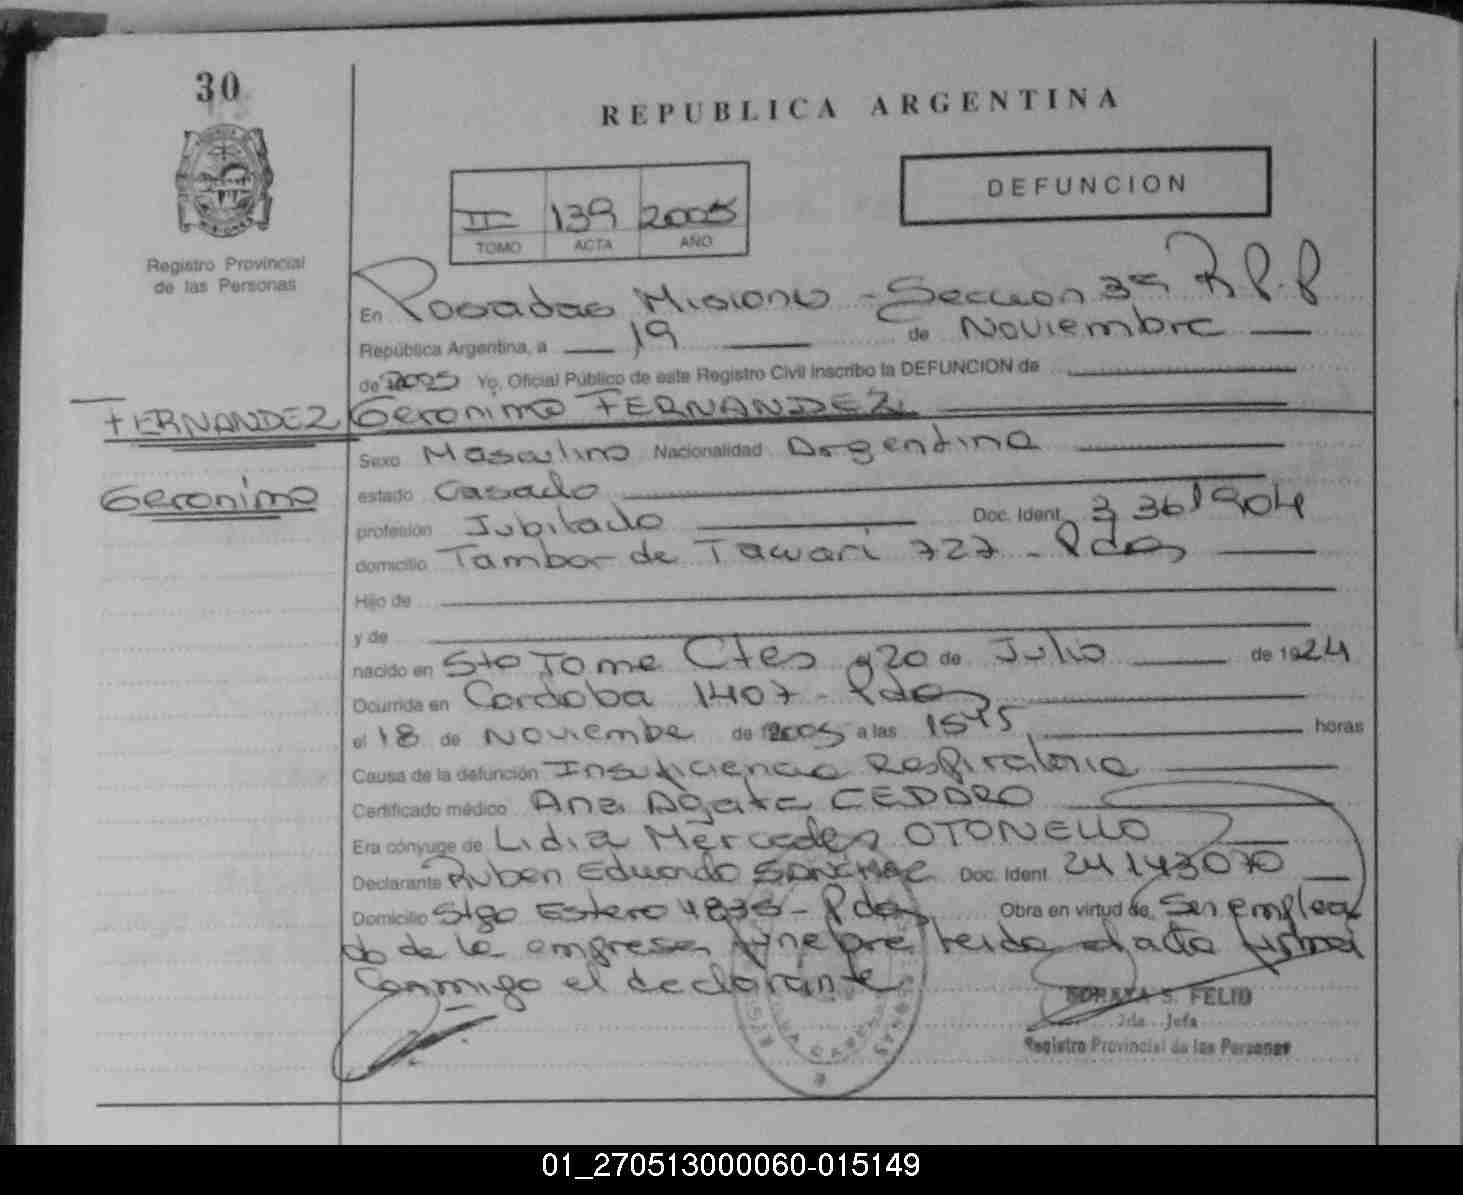 30
REPUBLICA ARGENTINA
DEFUNCION
II 139 2005
TOMO ACTA AÑO
Registro Provincial
de las Personas
En Posadas Misiones - Seccion 3ª R.P.P
República Argentina, a 19 de Noviembre
de 2005 Yo, Oficial Público de este Registro Civil inscribo la DEFUNCION de
FERNANDEZ Geronimo FERNANDEZ
Sexo Masculino Nacionalidad Argentina
Geronimo estado Casado
profesión Jubilado Doc. Ident. 3 361904
domicilio Tambor de Tacuari 727 - Pdas
Hijo de
y de
nacido en Sto Tome Ctes el 20 de Julio de 1924
Ocurrida en Cordoba 1407 - Pdas
el 18 de Noviembre de 2005 a las horas
Causa de la defunción Insuficiencia Respiratoria
Certificado médico Ana Agata CEDARO
Era cónyuge de Lidia Mercedes OTONELLO
Declarante Ruben Eduardo SANCHEZ Doc. Ident. 24143070
Domicilio Stgo Estero - Pdas Obra en virtud de Ser emplea
do de la empresa funebre leida el acta firma
Conmigo el declarante
SORAYA S. FELID
2da. Jefa
Registro Provincial de las Personas
01_270513000060-015149